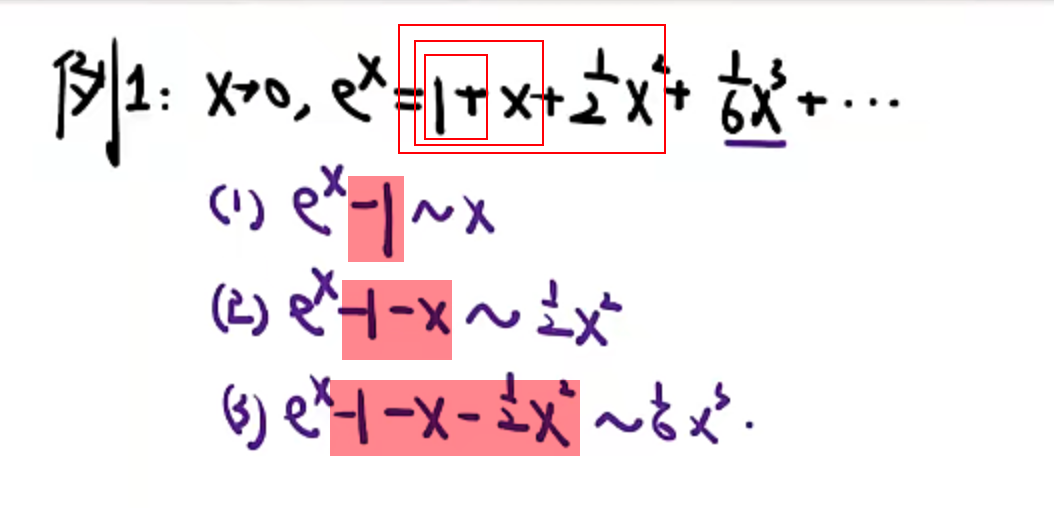 例1: x→0, eˣ = 1 + x + ½x² + ⅙x³ + ···
(1) eˣ - 1 ~ x
(2) eˣ - 1 - x ~ ½x²
(3) eˣ - 1 - x - ½x² ~ ⅙x³.